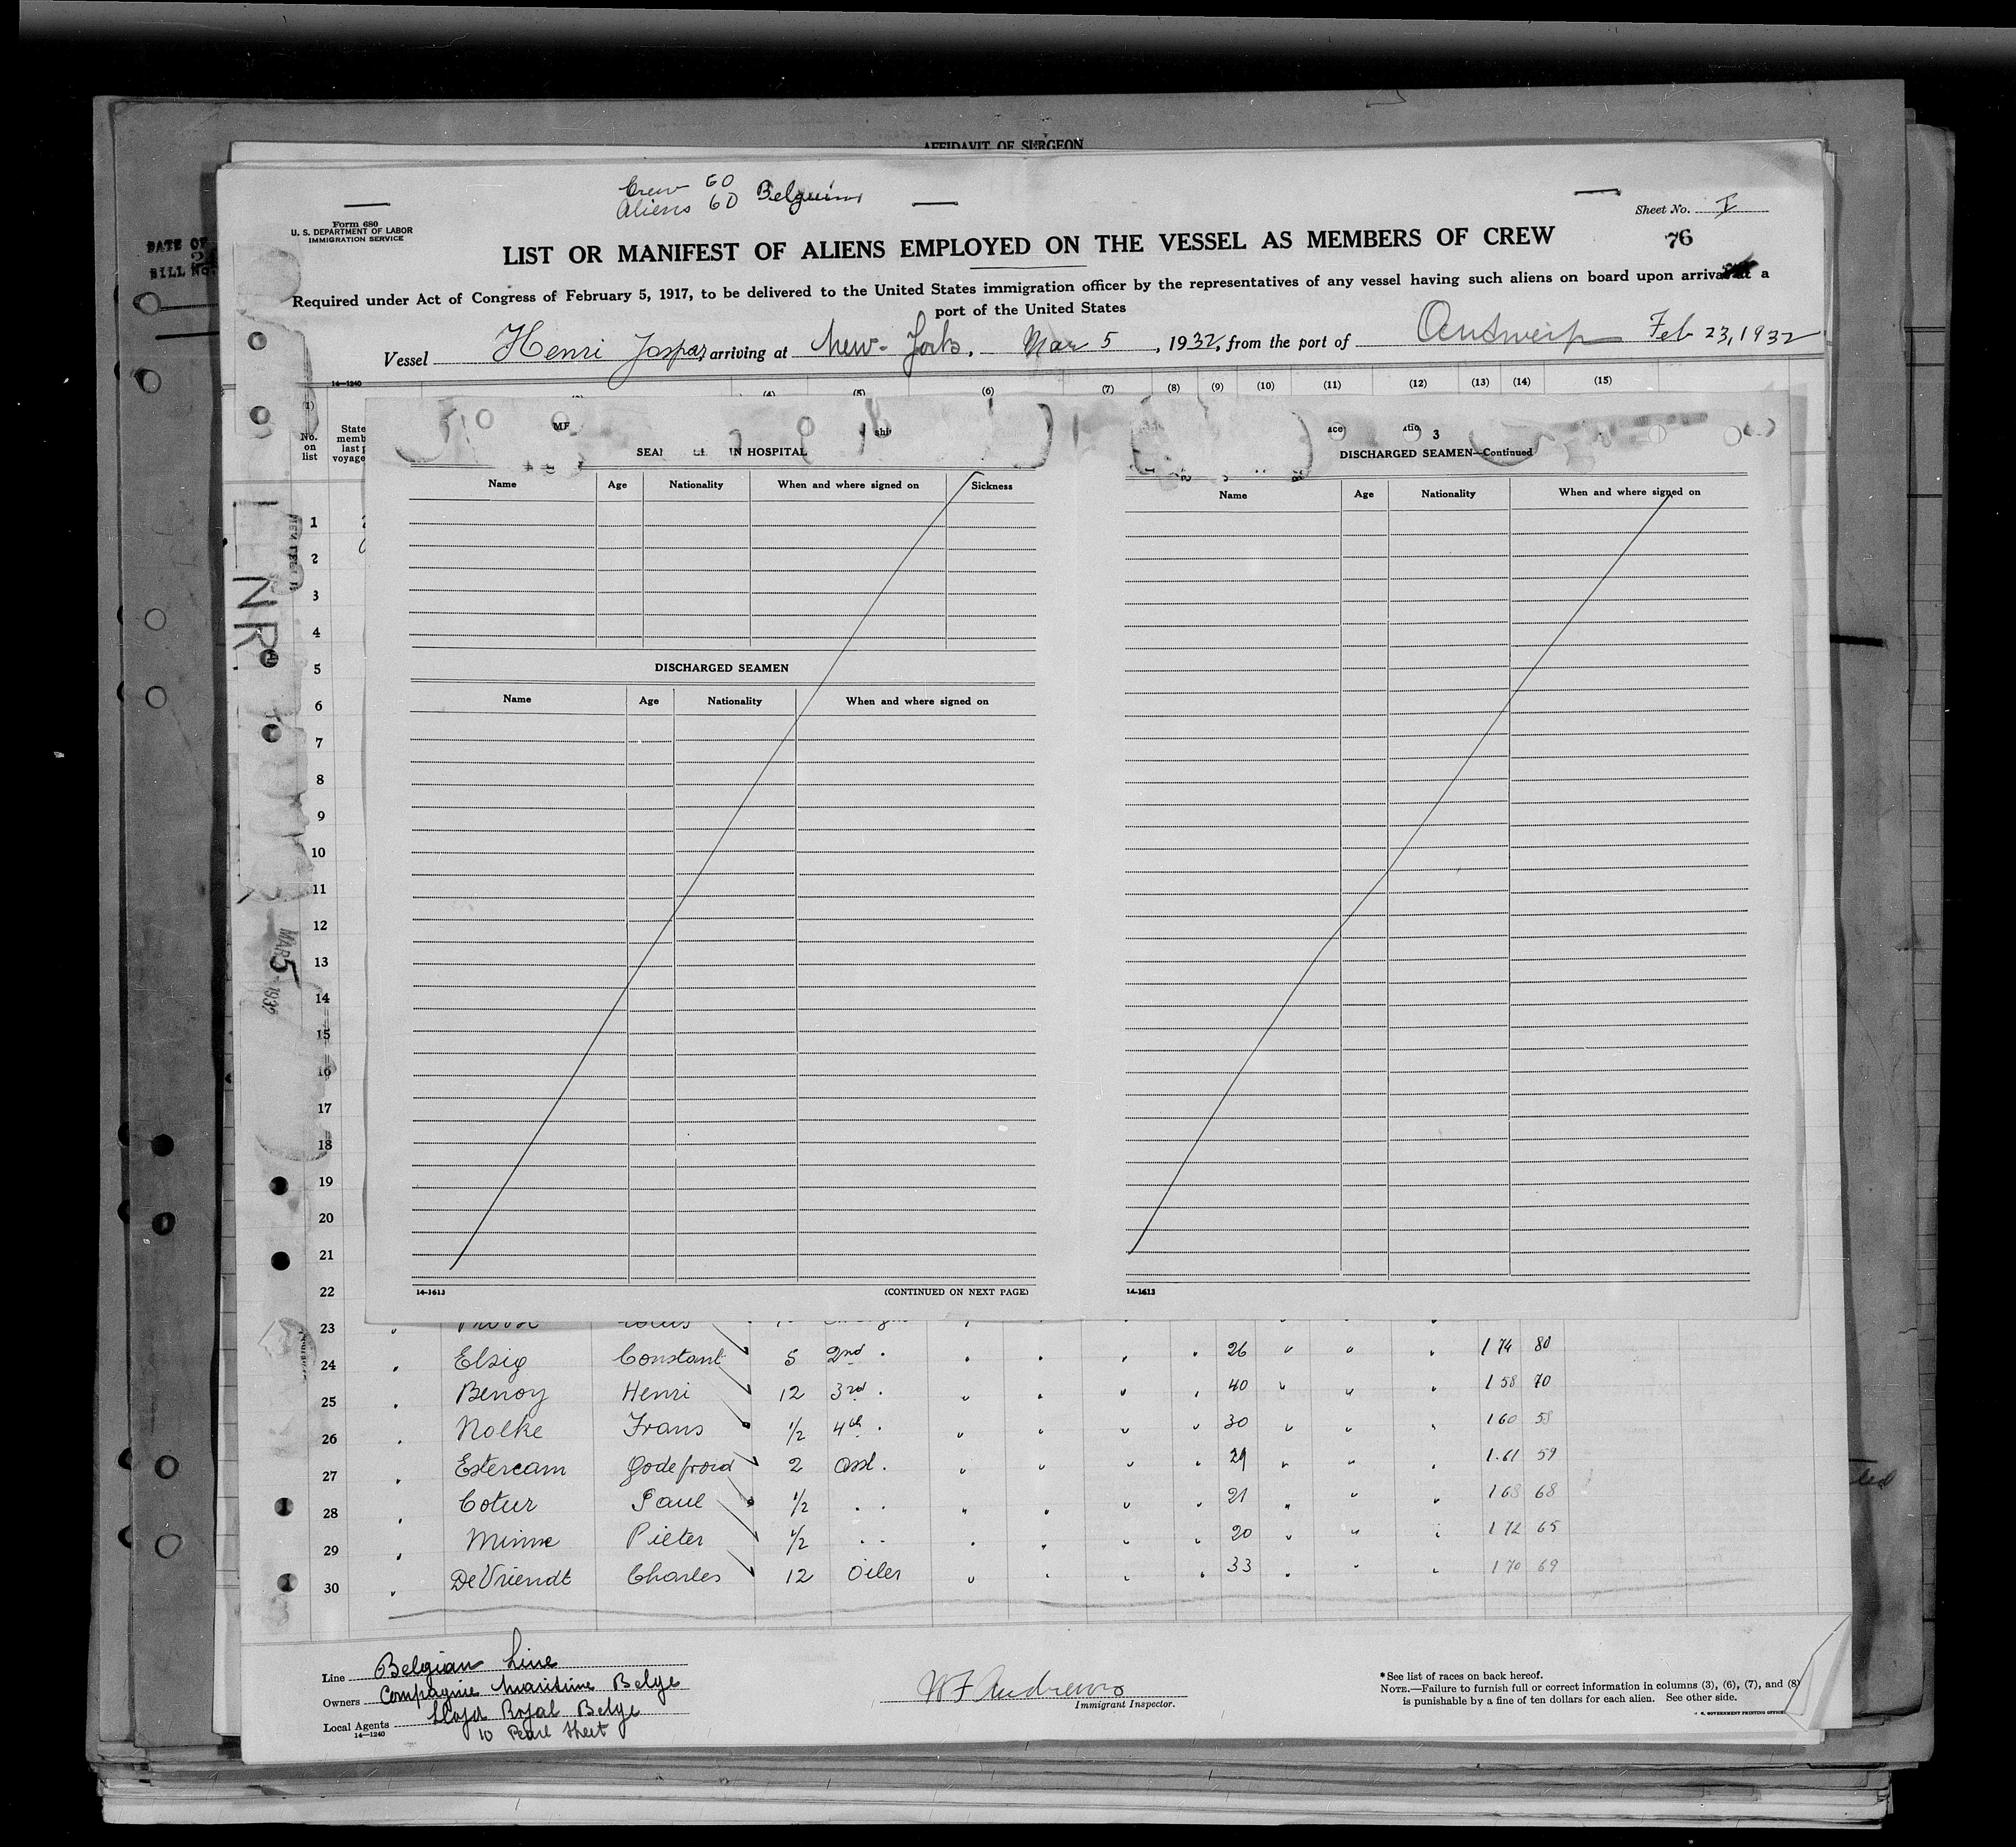 AFFIDAVIT OF SURGEON
Crew 60
Aliens 60 Belgium
Form 680
U. S. DEPARTMENT OF LABOR
IMMIGRATION SERVICE
Sheet No. I
76
DATE OF
BILL No.
LIST OR MANIFEST OF ALIENS EMPLOYED ON THE VESSEL AS MEMBERS OF CREW
Required under Act of Congress of February 5, 1917, to be delivered to the United States immigration officer by the representatives of any vessel having such aliens on board upon arrival at a
port of the United States
Vessel Henri Jaspar, arriving at New-York, Mar 5, 1932, from the port of Antwerp Feb 23, 1932
14-1240
(1) (4) (5) (6) (7) (8) (9) (10) (11) (12) (13) (14) (15)
No. on list
State memb last voyage
SEAMEN IN HOSPITAL
Name Age Nationality When and where signed on Sickness
DISCHARGED SEAMEN
Name Age Nationality When and where signed on
14-1613 (CONTINUED ON NEXT PAGE)
3
DISCHARGED SEAMEN—Continued
Name Age Nationality When and where signed on
14-1613
MAR 5 1932
1
2
3
4
5
6
7
8
9
10
11
12
13
14
15
16
17
18
19
20
21
22
23
24 " Elsig Constant 5 2nd " " " " " 26 " " " 1 74 80
25 " Benoy Henri 12 3rd " " " " " 40 " " " 1 58 70
26 " Nolke Frans 1/2 4th " " " " " 30 " " " 1 60 58
27 " Estercam Godefroid 2 Asst. " " " " 29 " " " 1.61 59
28 " Cotur Paul 1/2 " " " " " " 21 " " " 1 68 68
29 " Minne Pieter 1/2 " " " " " " 20 " " " 1 72 65
30 " De Vriendt Charles 12 Oiler " " " " 33 " " " 1 70 69
Line Belgian Line
Owners Compagnie Maritime Belge
Local Agents Lloyd Royal Belge
14-1240 10 Pearl Street
W F Andrews
Immigrant Inspector.
*See list of races on back hereof.
NOTE.—Failure to furnish full or correct information in columns (3), (6), (7), and (8)
is punishable by a fine of ten dollars for each alien. See other side.
GOVERNMENT PRINTING OFFICE